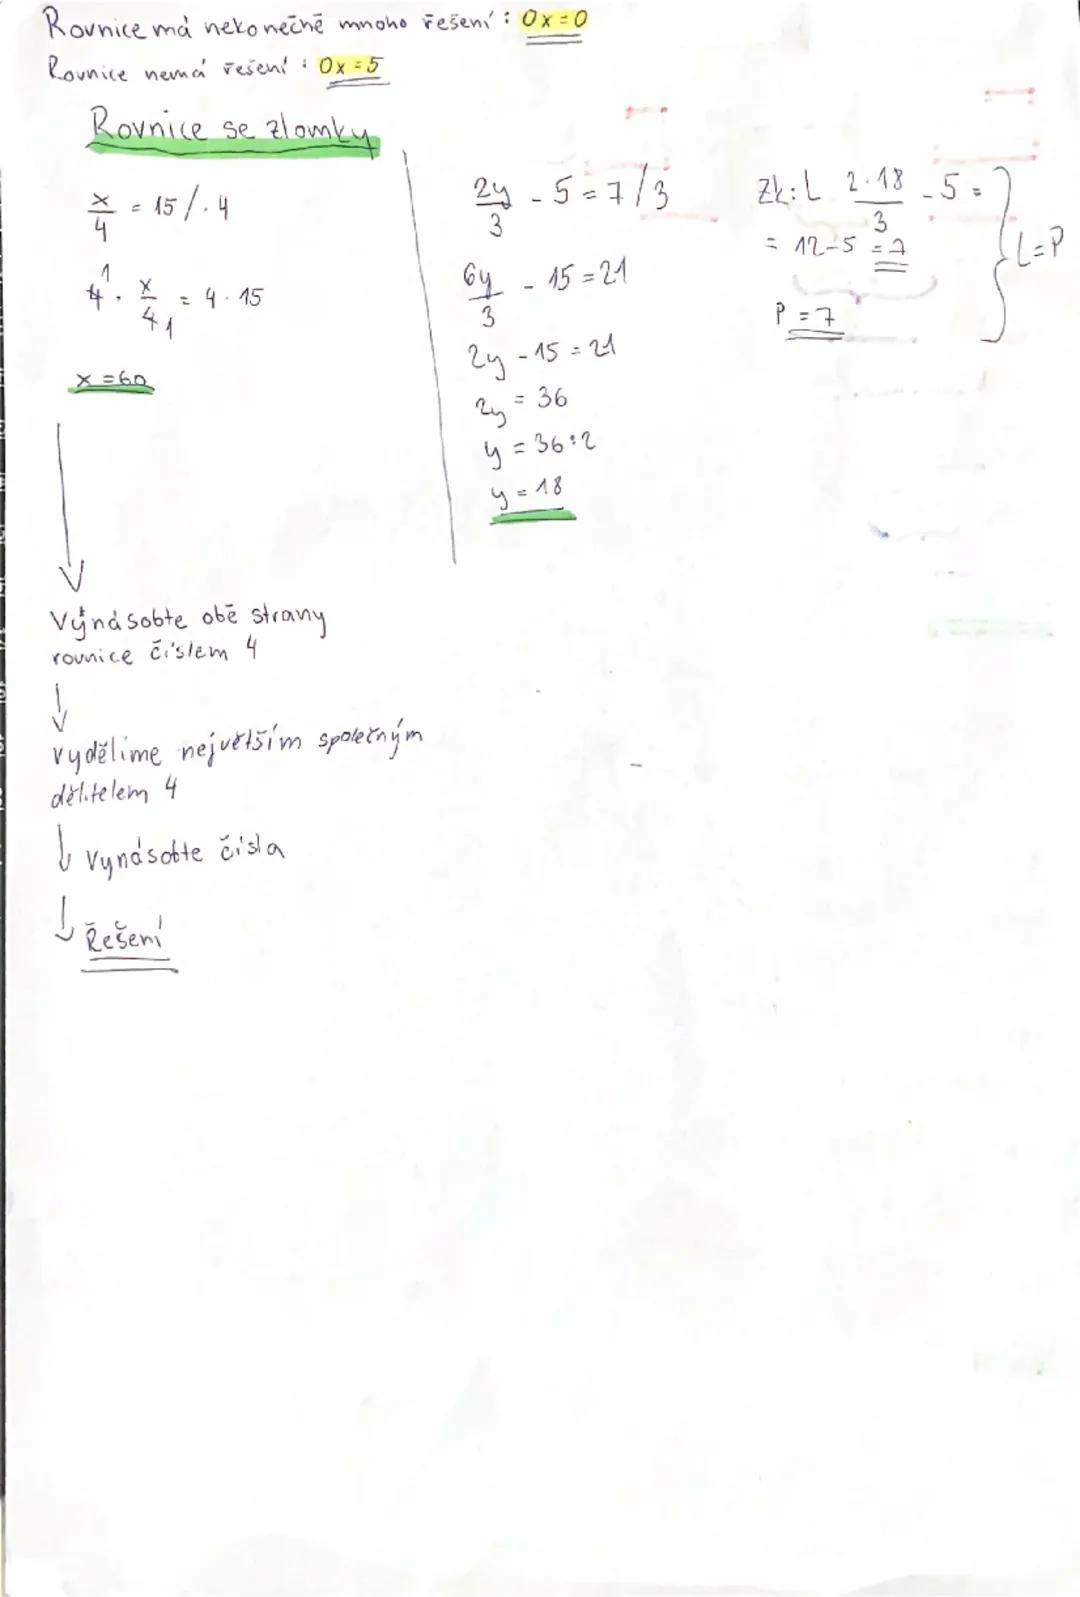 Rovnice má nekonečně mnoho řešení : 0x=0
Rovnice nemá řešení : 0x=5
Rovnice se zlomky
x/4 = 15 /. 4
4¹ . x/4₁ = 4 . 15
x = 60
Vynásobte obě strany
rovnice číslem 4
Vydělíme největším společným
dělitelem 4
Vynásobte čísla
Řešení
2y/3 - 5 = 7 / 3
6y/3 - 15 = 21
2y - 15 = 21
2y = 36
y = 36:2
y = 18
Zk: L 2·18/3 - 5 =
= 12-5 = 7
P = 7
L=P